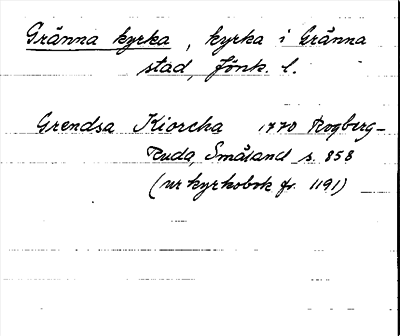 Gränna kyrka, kyrka i Gränna
stad, Jönk. l.
Grendsa Kiorcha 1770 Rogberg-
Ruda, Småland s. 858
(ur kyrkobok fr. 1191)